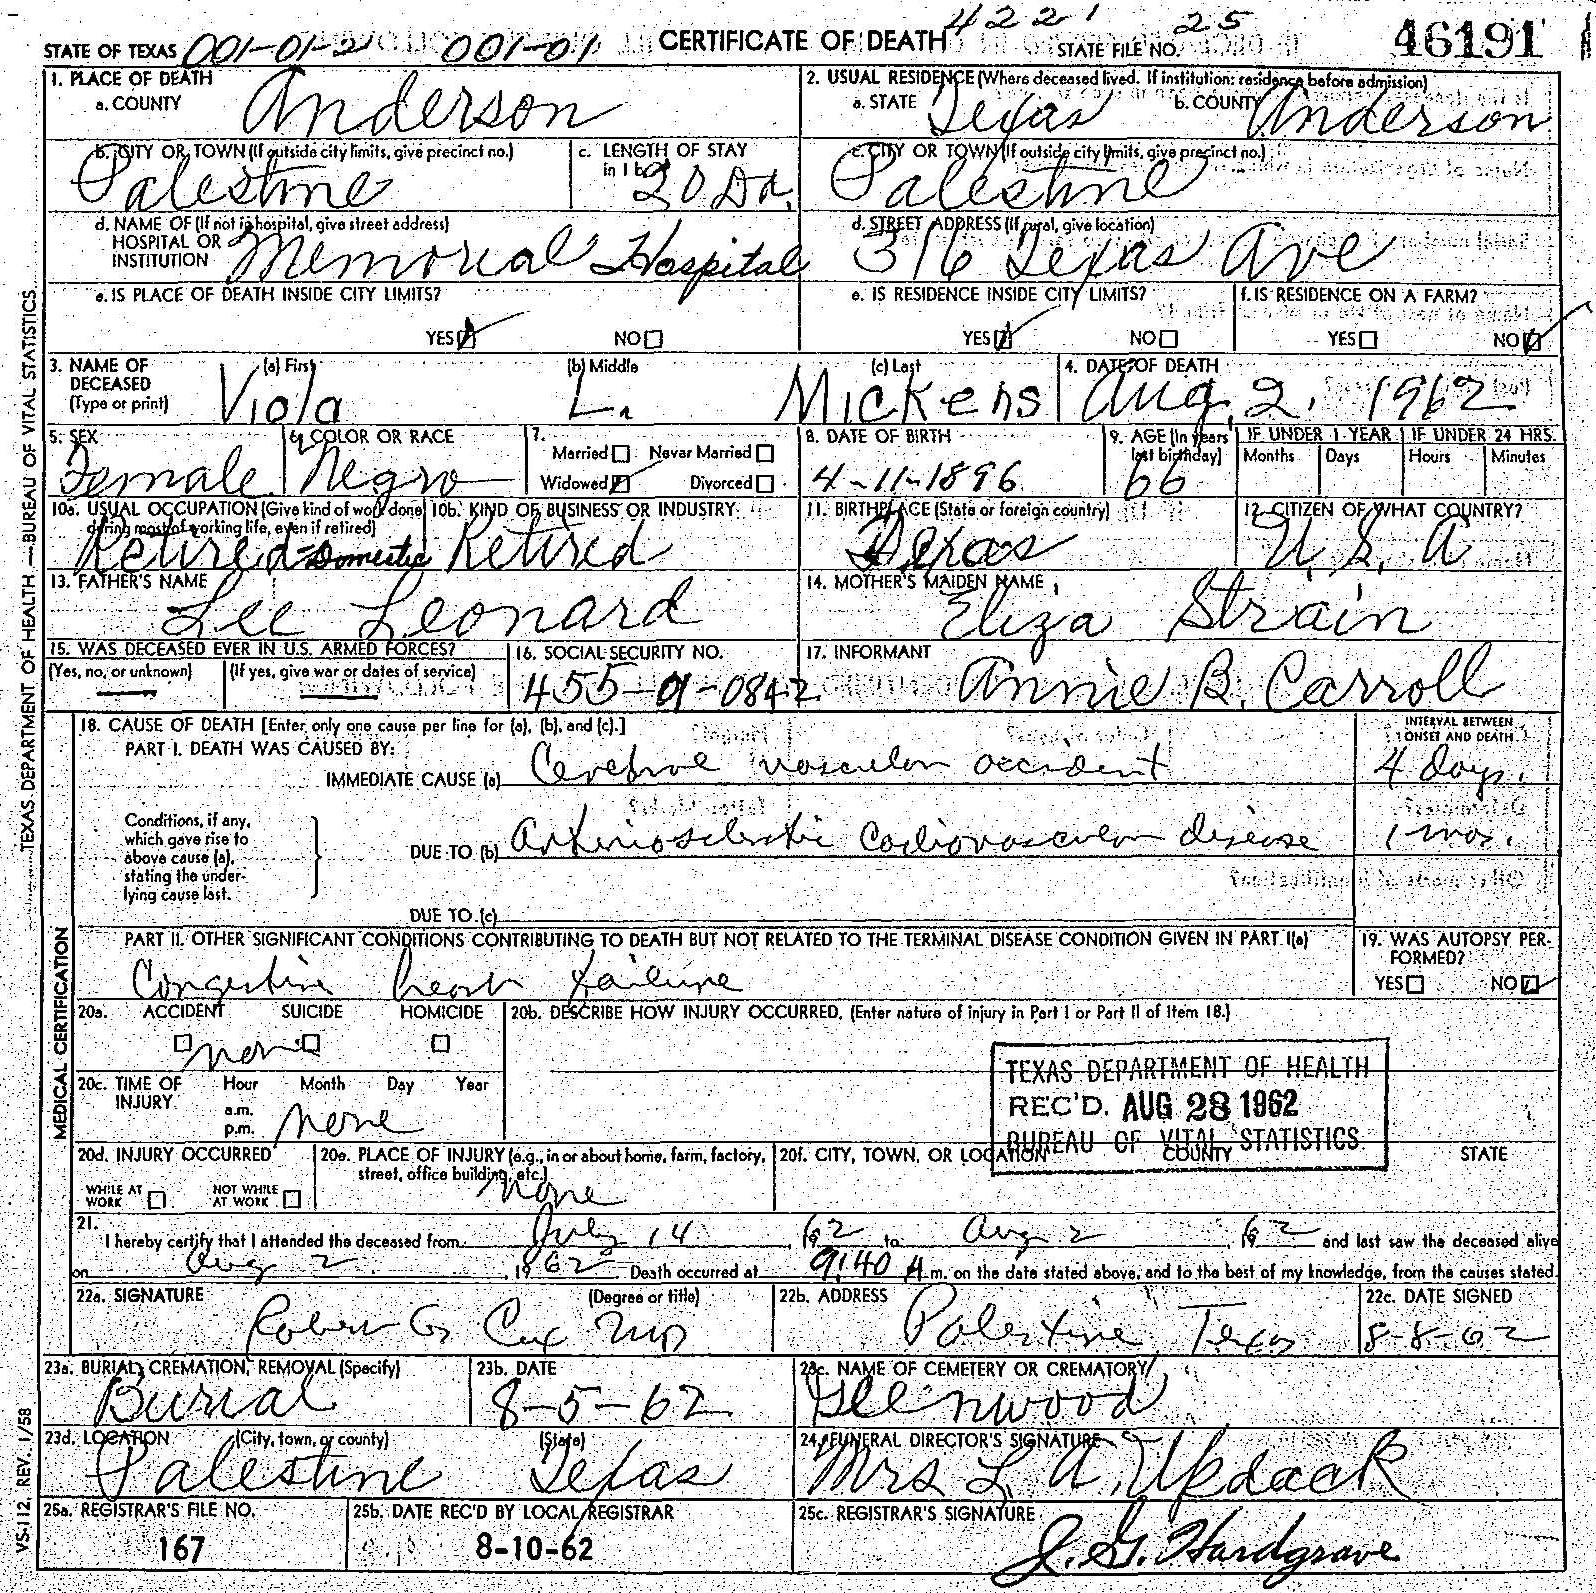 4221 25
STATE OF TEXAS 001-01-2 001-01 CERTIFICATE OF DEATH STATE FILE NO. 46191
1. PLACE OF DEATH
a. COUNTY Anderson
2. USUAL RESIDENCE (Where deceased lived. If institution: residence before admission)
a. STATE Texas b. COUNTY Anderson
b. CITY OR TOWN (If outside city limits, give precinct no.) Palestine
c. LENGTH OF STAY in 1 b 20 Da.
c. CITY OR TOWN (If outside city limits, give precinct no.) Palestine
d. NAME OF (If not in hospital, give street address)
HOSPITAL OR
INSTITUTION Memorial Hospital
d. STREET ADDRESS (If rural, give location)
316 Texas Ave
e. IS PLACE OF DEATH INSIDE CITY LIMITS?
YES NO
e. IS RESIDENCE INSIDE CITY LIMITS?
YES NO
f. IS RESIDENCE ON A FARM?
YES NO
3. NAME OF DECEASED (Type or print)
(a) First Viola
(b) Middle L.
(c) Last Mickens
4. DATE OF DEATH Aug. 2, 1962
5. SEX Female
6. COLOR OR RACE Negro
7. Married Never Married
Widowed Divorced
8. DATE OF BIRTH 4-11-1896
9. AGE (In years last birthday) 66
IF UNDER 1 YEAR Months Days
IF UNDER 24 HRS. Hours Minutes
10a. USUAL OCCUPATION (Give kind of work done during most of working life, even if retired)
Retired-Domestic
10b. KIND OF BUSINESS OR INDUSTRY
Retired
11. BIRTHPLACE (State or foreign country)
Texas
12. CITIZEN OF WHAT COUNTRY?
U. S. A
13. FATHER'S NAME
Lee Leonard
14. MOTHER'S MAIDEN NAME
Eliza Strain
15. WAS DECEASED EVER IN U.S. ARMED FORCES?
(Yes, no, or unknown) (If yes, give war or dates of service)
16. SOCIAL SECURITY NO.
455-01-0842
17. INFORMANT
Annie B. Carroll
18. CAUSE OF DEATH [Enter only one cause per line for (a), (b), and (c).]
INTERVAL BETWEEN ONSET AND DEATH
PART I. DEATH WAS CAUSED BY:
IMMEDIATE CAUSE (a) Cerebral vascular accident 4 days.
Conditions, if any, which gave rise to above cause (a), stating the underlying cause last.
DUE TO (b) Arteriosclerotic Cardiovascular disease 1 mos.
DUE TO (c)
PART II. OTHER SIGNIFICANT CONDITIONS CONTRIBUTING TO DEATH BUT NOT RELATED TO THE TERMINAL DISEASE CONDITION GIVEN IN PART I(a)
Congestive heart failure
19. WAS AUTOPSY PERFORMED?
YES NO
20a. ACCIDENT SUICIDE HOMICIDE
none
20b. DESCRIBE HOW INJURY OCCURRED. (Enter nature of injury in Part I or Part II of Item 18.)
20c. TIME OF INJURY Hour Month Day Year
a.m.
p.m. none
TEXAS DEPARTMENT OF HEALTH
REC'D. AUG 28 1962
BUREAU OF VITAL STATISTICS
20d. INJURY OCCURRED
WHILE AT WORK NOT WHILE AT WORK
20e. PLACE OF INJURY (e.g., in or about home, farm, factory, street, office building, etc.)
none
20f. CITY, TOWN, OR LOCATION COUNTY STATE
21.
I hereby certify that I attended the deceased from July 14, 1962 to Aug 2, 1962 and last saw the deceased alive
on Aug 2, 1962. Death occurred at 9:40 A m. on the date stated above, and to the best of my knowledge, from the causes stated.
22a. SIGNATURE (Degree or title)
Robert G. Cox MD
22b. ADDRESS
Palestine, Texas
22c. DATE SIGNED
8-8-62
23a. BURIAL, CREMATION, REMOVAL (Specify)
Burial
23b. DATE
8-5-62
23c. NAME OF CEMETERY OR CREMATORY
Glenwood
23d. LOCATION (City, town, or county) (State)
Palestine Texas
24. FUNERAL DIRECTOR'S SIGNATURE
Mrs L. A. Updack
25a. REGISTRAR'S FILE NO.
167
25b. DATE REC'D BY LOCAL REGISTRAR
8-10-62
25c. REGISTRAR'S SIGNATURE
J. G. Hardgrave
TEXAS DEPARTMENT OF HEALTH — BUREAU OF VITAL STATISTICS
MEDICAL CERTIFICATION
VS-112, REV. 1/58